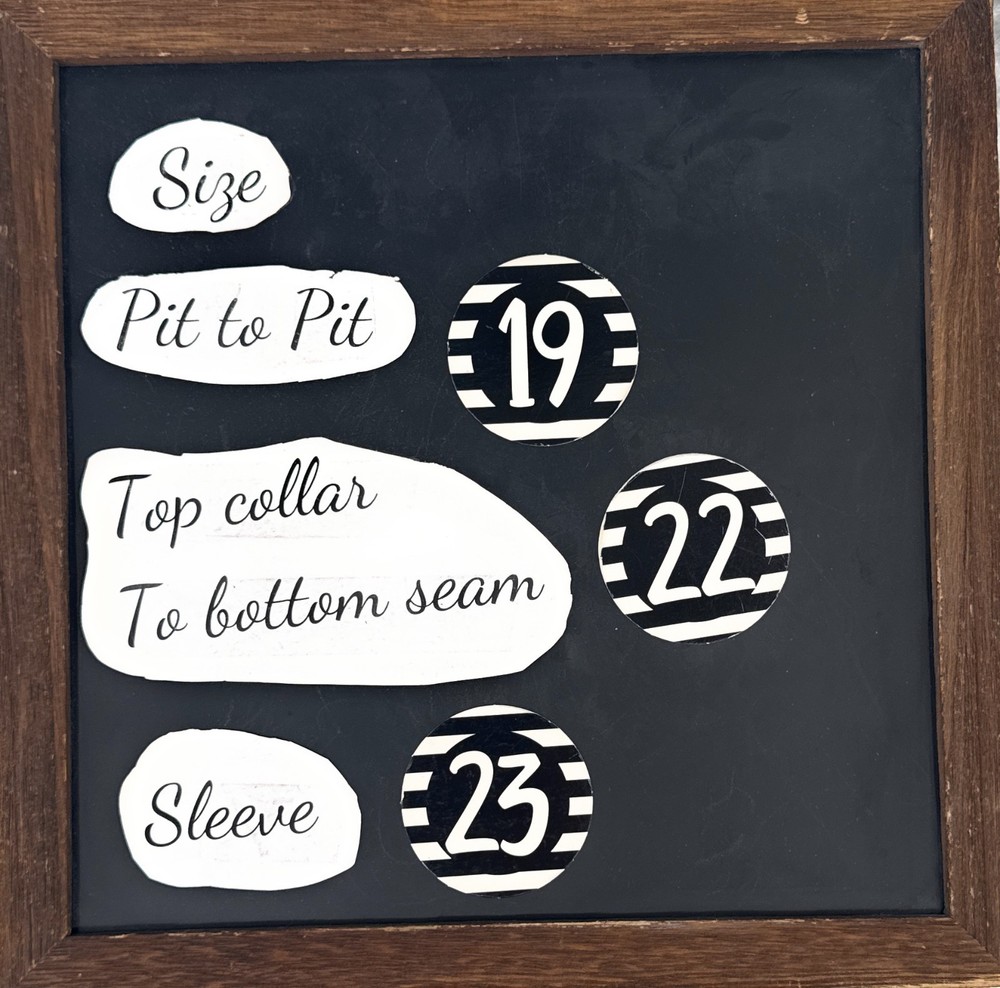 Size
Pit to Pit 19
Top collar
To bottom seam 22
Sleeve 23